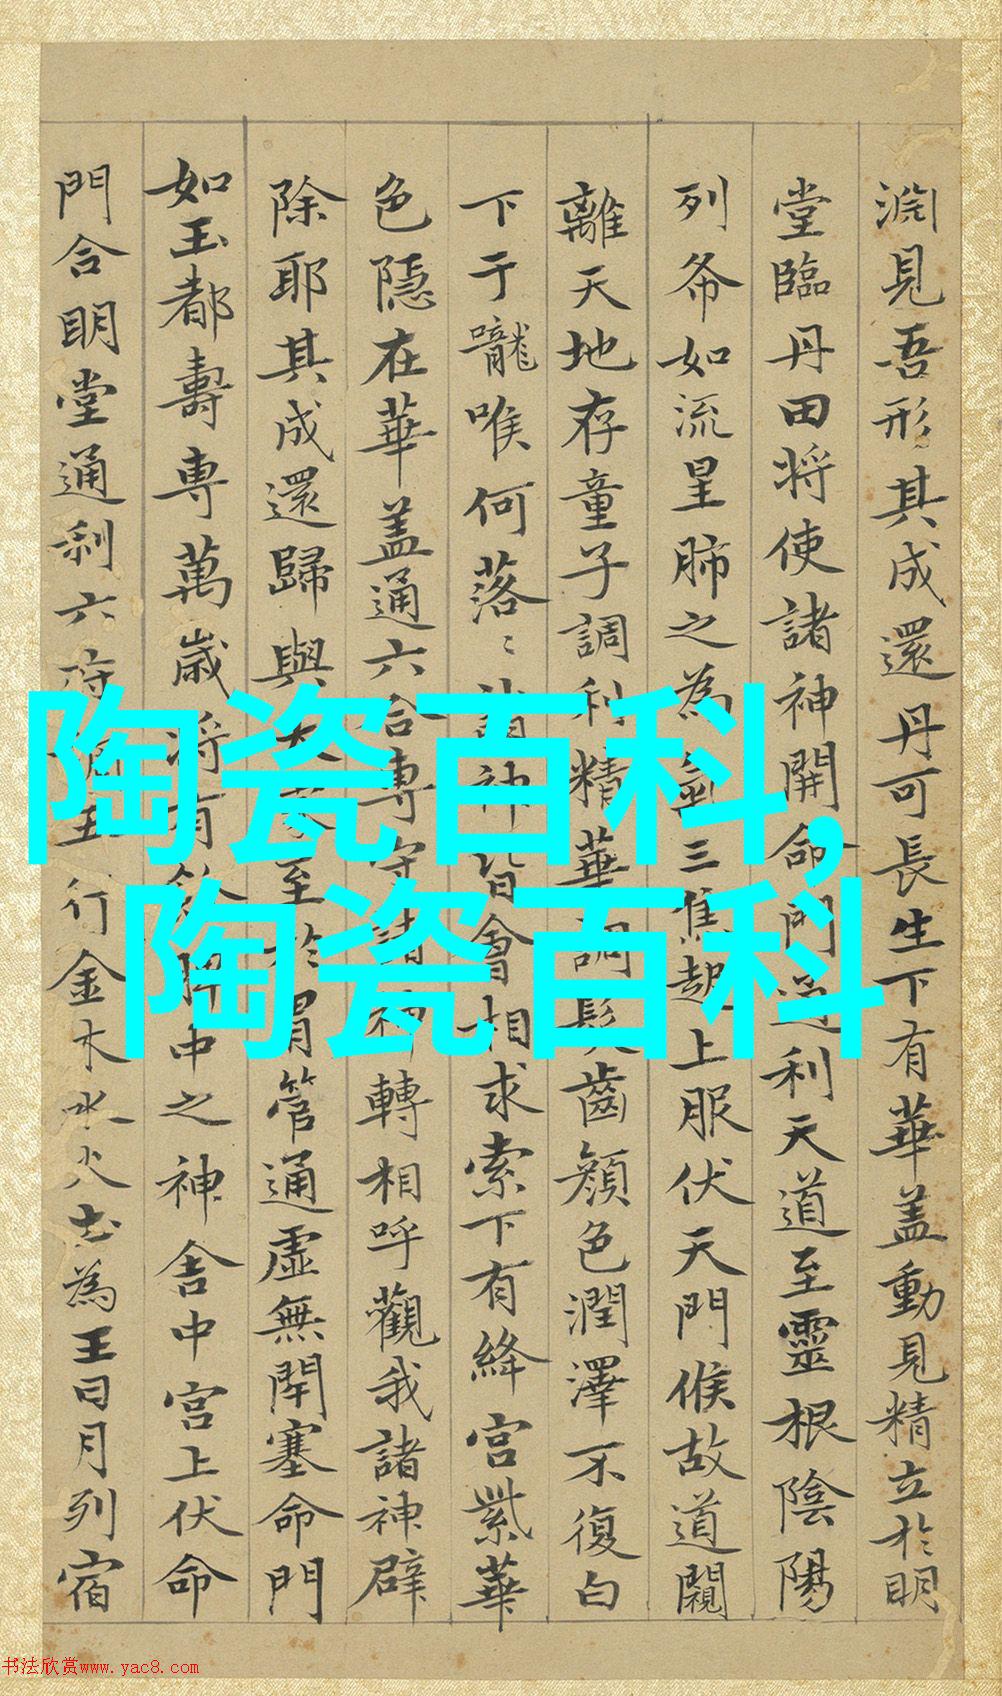 淵見吾形其成還丹可長生下有華盖動見精立於明
堂臨丹田将使諸神開命門通利天道至靈根陰陽
列布如流星肺之為氣三焦起上服伏天門候故道闚
離天地存童子調利精華調髮齒顏色潤澤不復白
下于嚨喉何落落諸神皆會相求索下有絳宮紫華
色隱在華盖通六合專守諸神轉相呼觀我諸神辟
除耶其成還歸與大家至於胃管通虛無閉塞命門
如玉都壽專萬歲将有餘脾中之神舍中宮上伏命
門合明堂通利六府調五行金木水火土為王日月列宿
陶瓷百科,
陶瓷百科
书法欣赏www.yac8.com